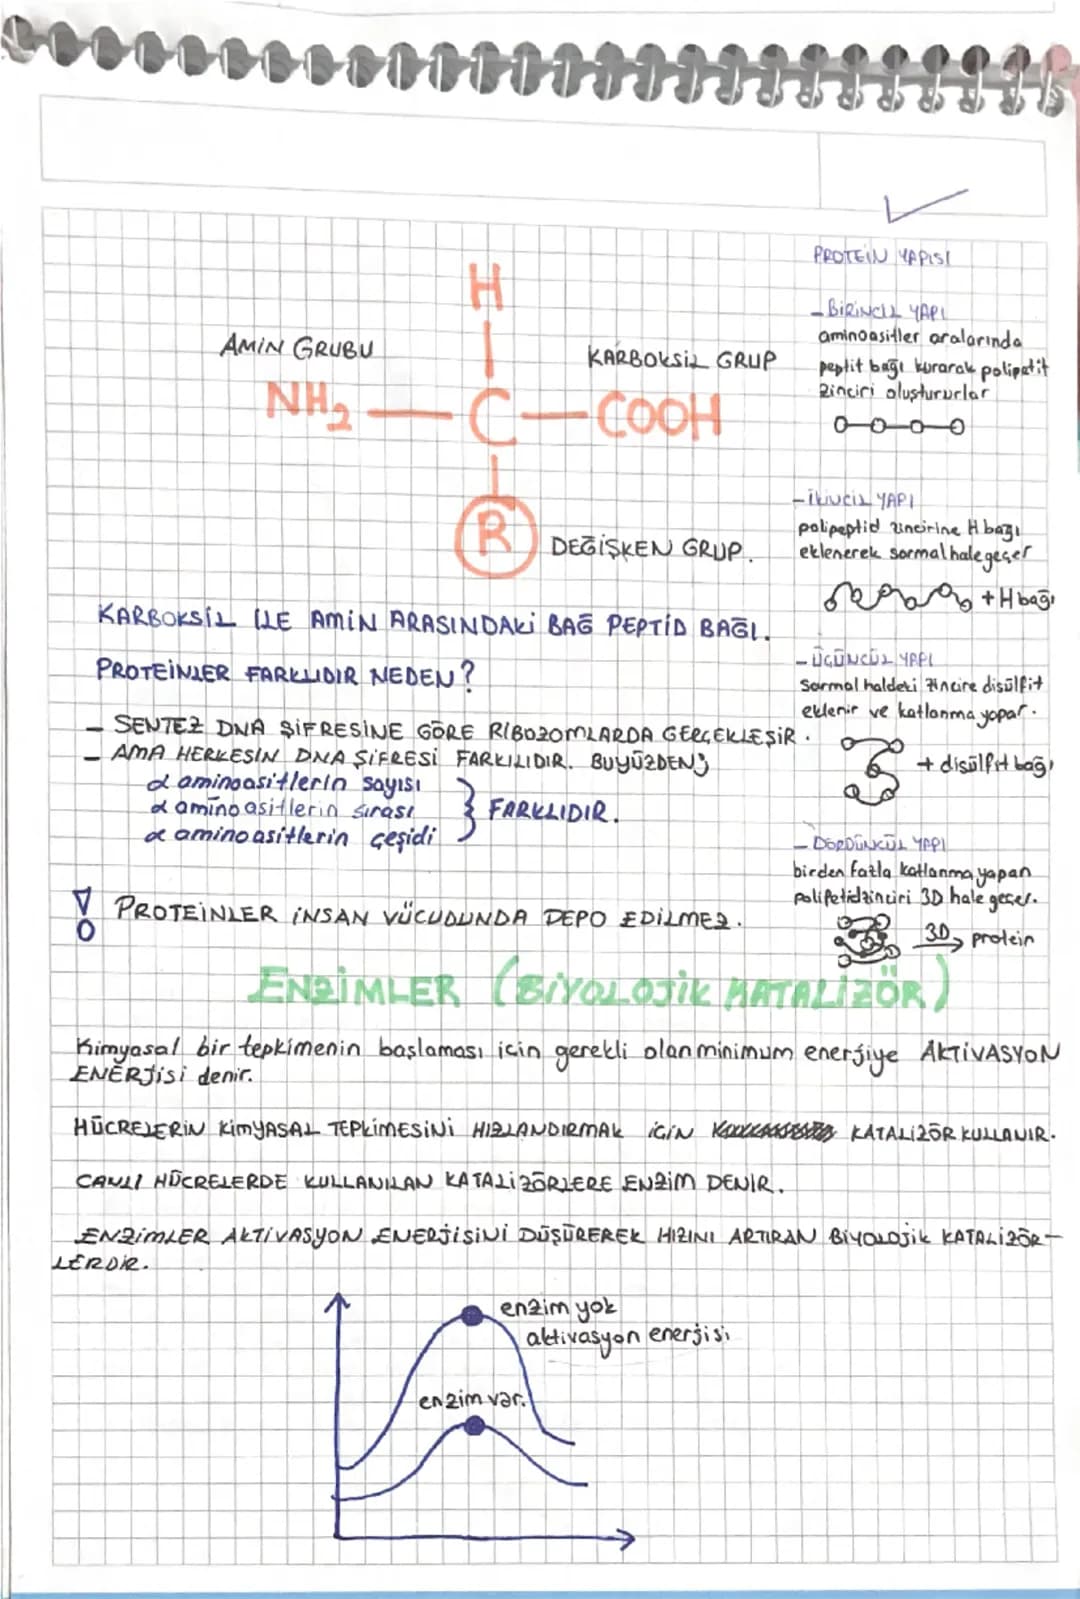 H
AMİN GRUBU
KARBOKSİL GRUP
NH₂ — C — COOH
R
DEĞİŞKEN GRUP.
KARBOKSİL İLE AMİN ARASINDAKİ BAĞ PEPTİD BAĞI.
PROTEİNLER FARKLIDIR NEDEN?
- SENTEZ DNA ŞİFRESİNE GÖRE RİBOZOMLARDA GERÇEKLEŞİR.
- AMA HERKESİN DNA ŞİFRESİ FARKLILIDIR. BUYÜZDEN;
α aminoasitlerin sayısı
α aminoasitlerin sırası
α aminoasitlerin çeşidi
} FARKLIDIR.
PROTEİNLER İNSAN VÜCUDUNDA DEPO EDİLMEZ.
PROTEİN YAPISI
- BİRİNCİL YAPI
aminoasitler aralarında
peptit bağı kurarak polipetit
zinciri oluştururlar
- İKİNCİL YAPI
polipeptid zincirine H bağı
eklenerek sarmal hale geçer
+ H bağı
- ÜÇÜNCÜL YAPI
Sarmal haldeki zincire disülfit
eklenir ve katlanma yapar.
+ disülfit bağı
- DÖRDÜNCÜL YAPI
birden fazla katlanma yapan
polipetid zinciri 3D hale geçer.
3D → protein
ENZİMLER (BİYOLOJİK KATALİZÖR)
Kimyasal bir tepkimenin başlaması için gerekli olan minimum enerjiye AKTİVASYON
ENERJİSİ denir.
HÜCRELERİN KİMYASAL TEPKİMESİNİ HIZLANDIRMAK İÇİN KATALİZÖR KULLANIR.
CANLI HÜCRELERDE KULLANILAN KATALİZÖRLERE ENZİM DENİR.
ENZİMLER AKTİVASYON ENERJİSİNİ DÜŞÜREREK HIZINI ARTIRAN BİYOLOJİK KATALİZÖR-
LERDİR.
enzim yok
aktivasyon enerjisi
enzim var.